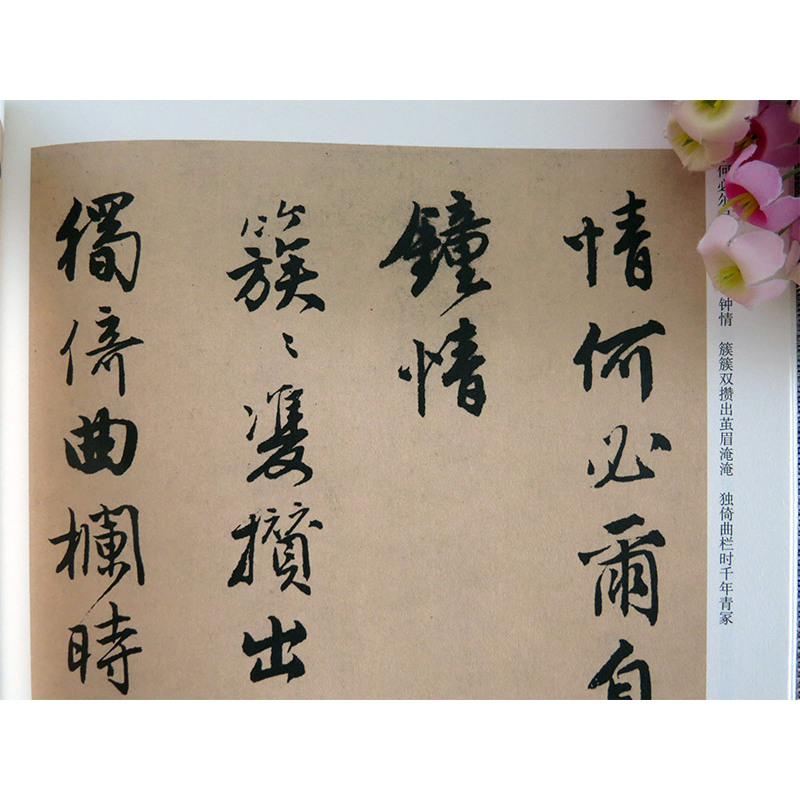 情何必爾自
鐘情
簇〻雙攢出
獨倚曲欄時
何必尔
钟情　簇簇双攒出茧眉淹淹　独倚曲栏时千年青冢